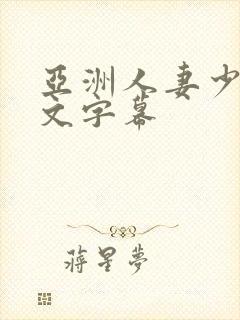 亞洲人妻少
文字幕
蔣星夢